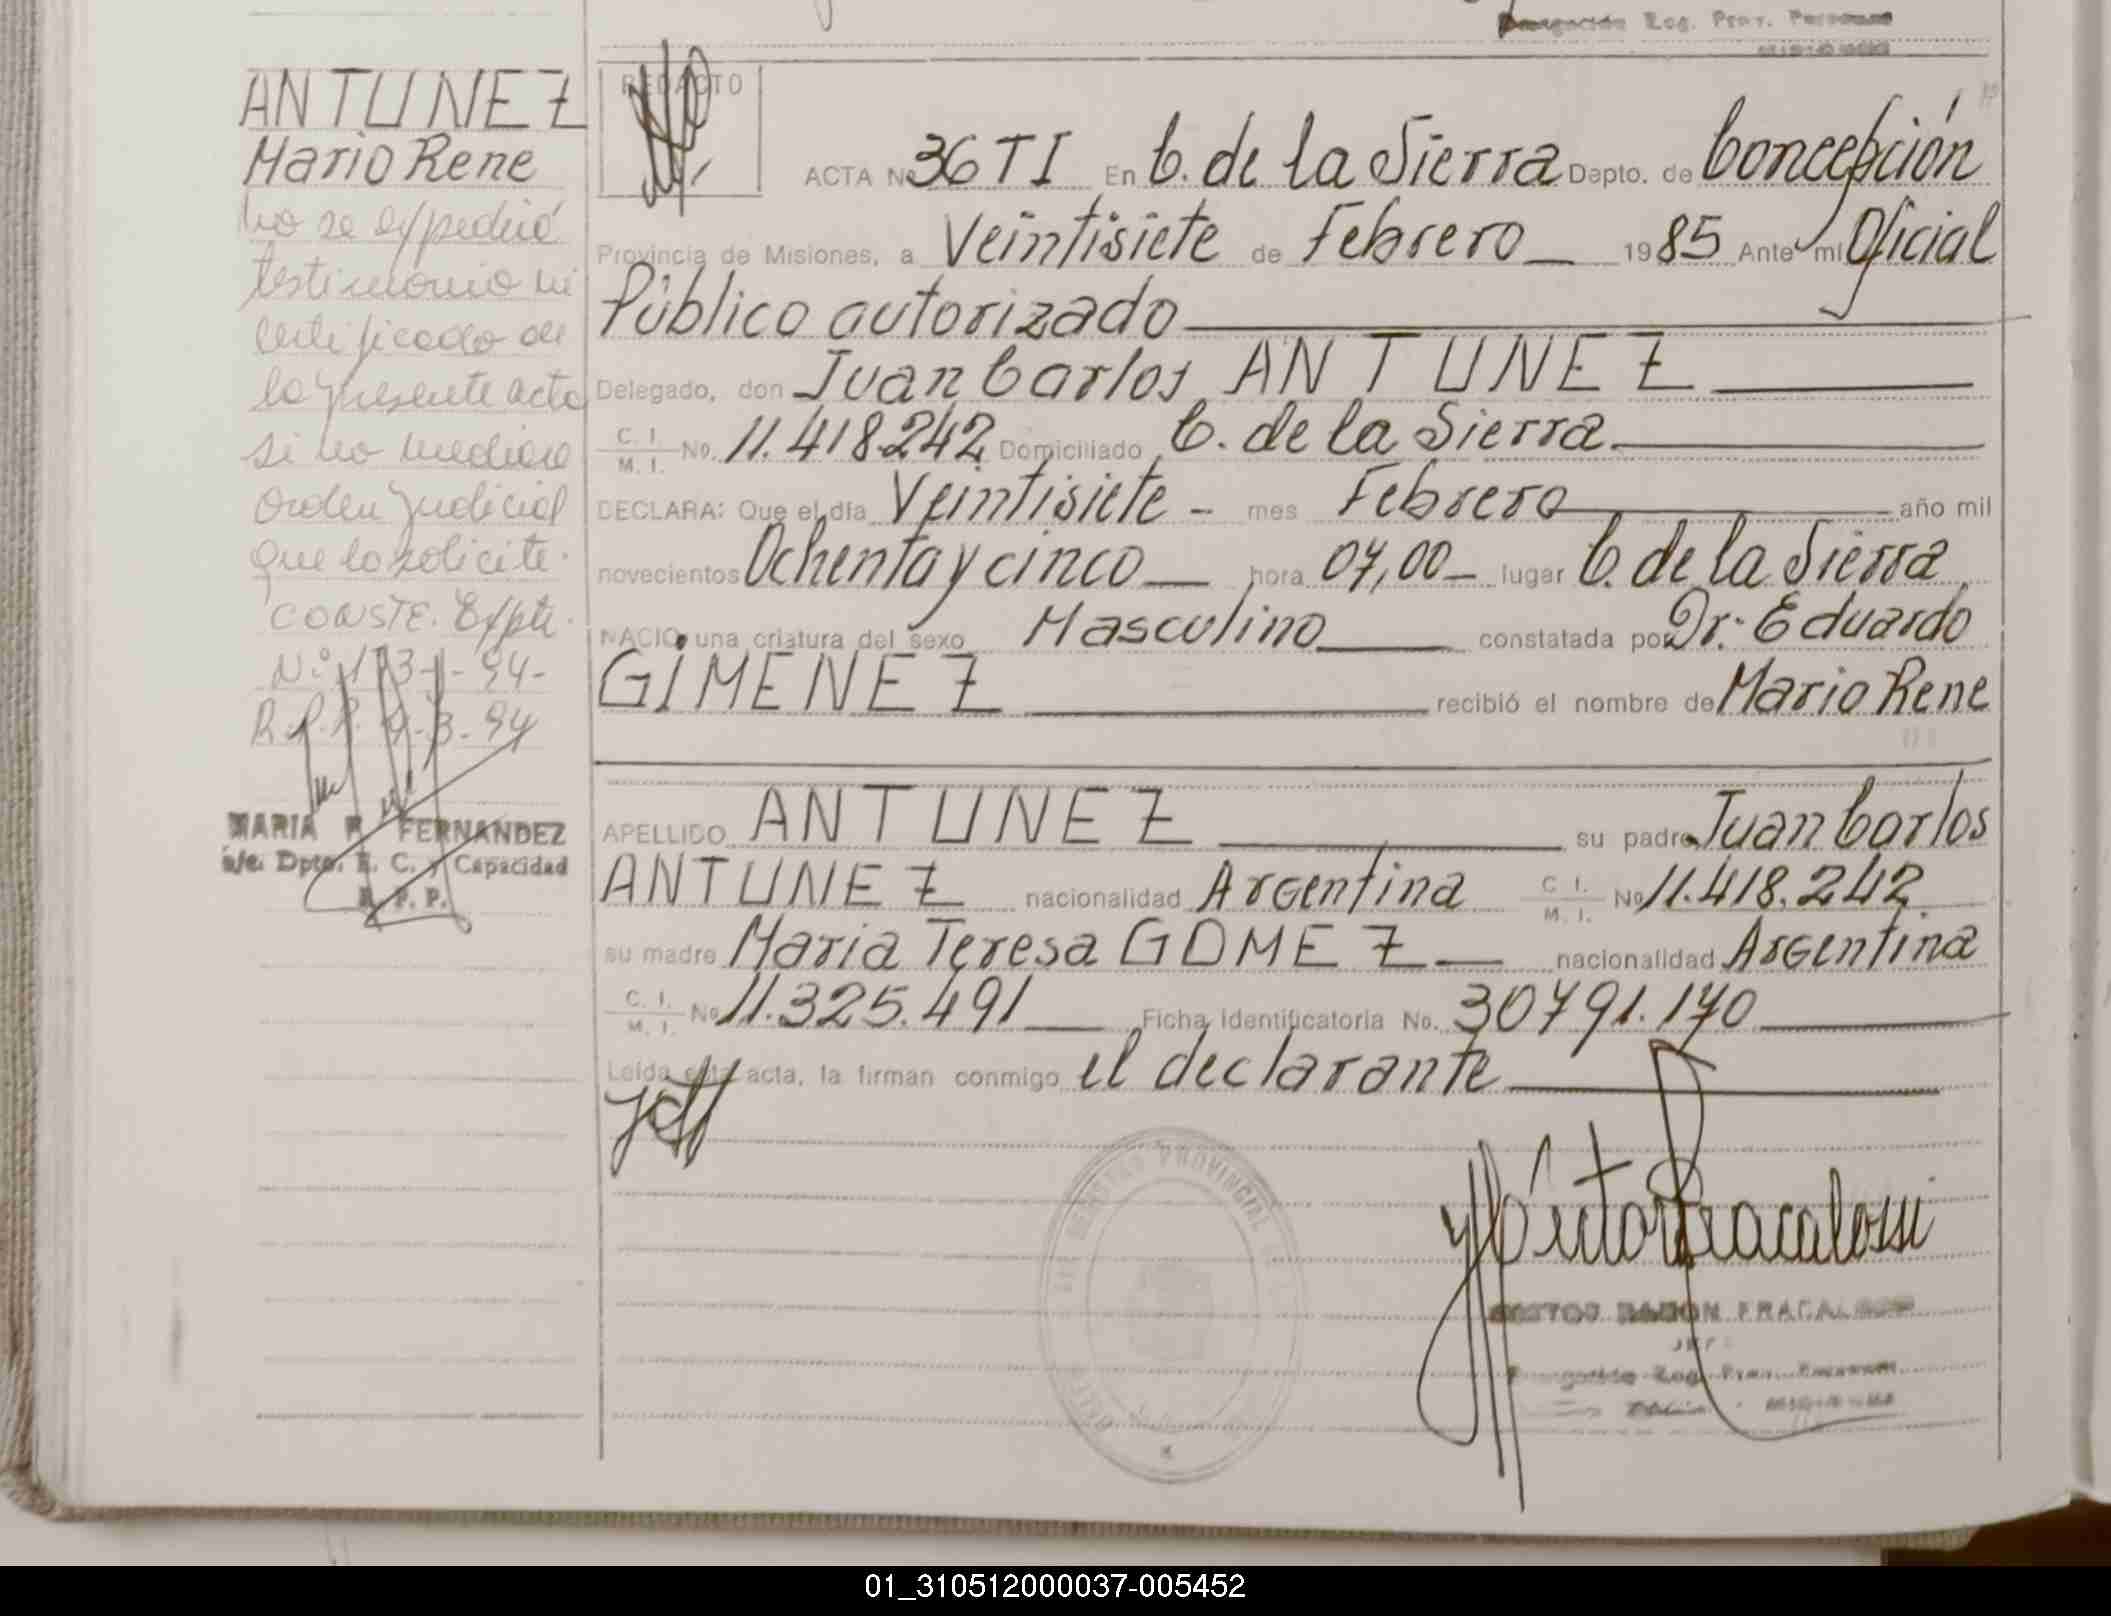 Delegación Reg. Prov. Personas
MISIONES
ANTUNEZ
Mario Rene
No se expedirá
testimonio ni
certificado de
la presente acta
si no mediare
orden judicial
que lo solicite.
CONSTE. Expte.
R.P.P. 94
MARIA FERNANDEZ
a/c. Dpto. E. C. y Capacidad
R. P. P.
REDACTO
ACTA No 36 TI En C. de la Sierra Dapto. de Concepción
Provincia de Misiones, a Veintisiete de Febrero 1985 Ante mi Oficial
Público autorizado
Delegado, don Juan Carlos ANTUNEZ
C. I. M. I. No. 11.418.242 Domiciliado C. de la Sierra
DECLARA: Que el día Veintisiete - mes Febrero año mil
novecientos Ochenta y cinco hora 07,00 lugar C. de la Sierra
NACIO una criatura del sexo Masculino constatada por Dr. Eduardo
GIMENEZ recibió el nombre de Mario Rene
APELLIDO ANTUNEZ su padre Juan Carlos
ANTUNEZ nacionalidad Argentina C. I. M. I. No 11.418.242
su madre Maria Teresa GOMEZ nacionalidad Argentina
C. I. M. I. No 11.325.491 Ficha Identificatoria No. 30791.170
Leída esta acta, la firman conmigo el declarante
REGISTRO PROVINCIAL
Fracalossi
RAMON FRACALOSSI
JEFE
Delegación Reg. Prov. Personas
MISIONES
01_310512000037-005452